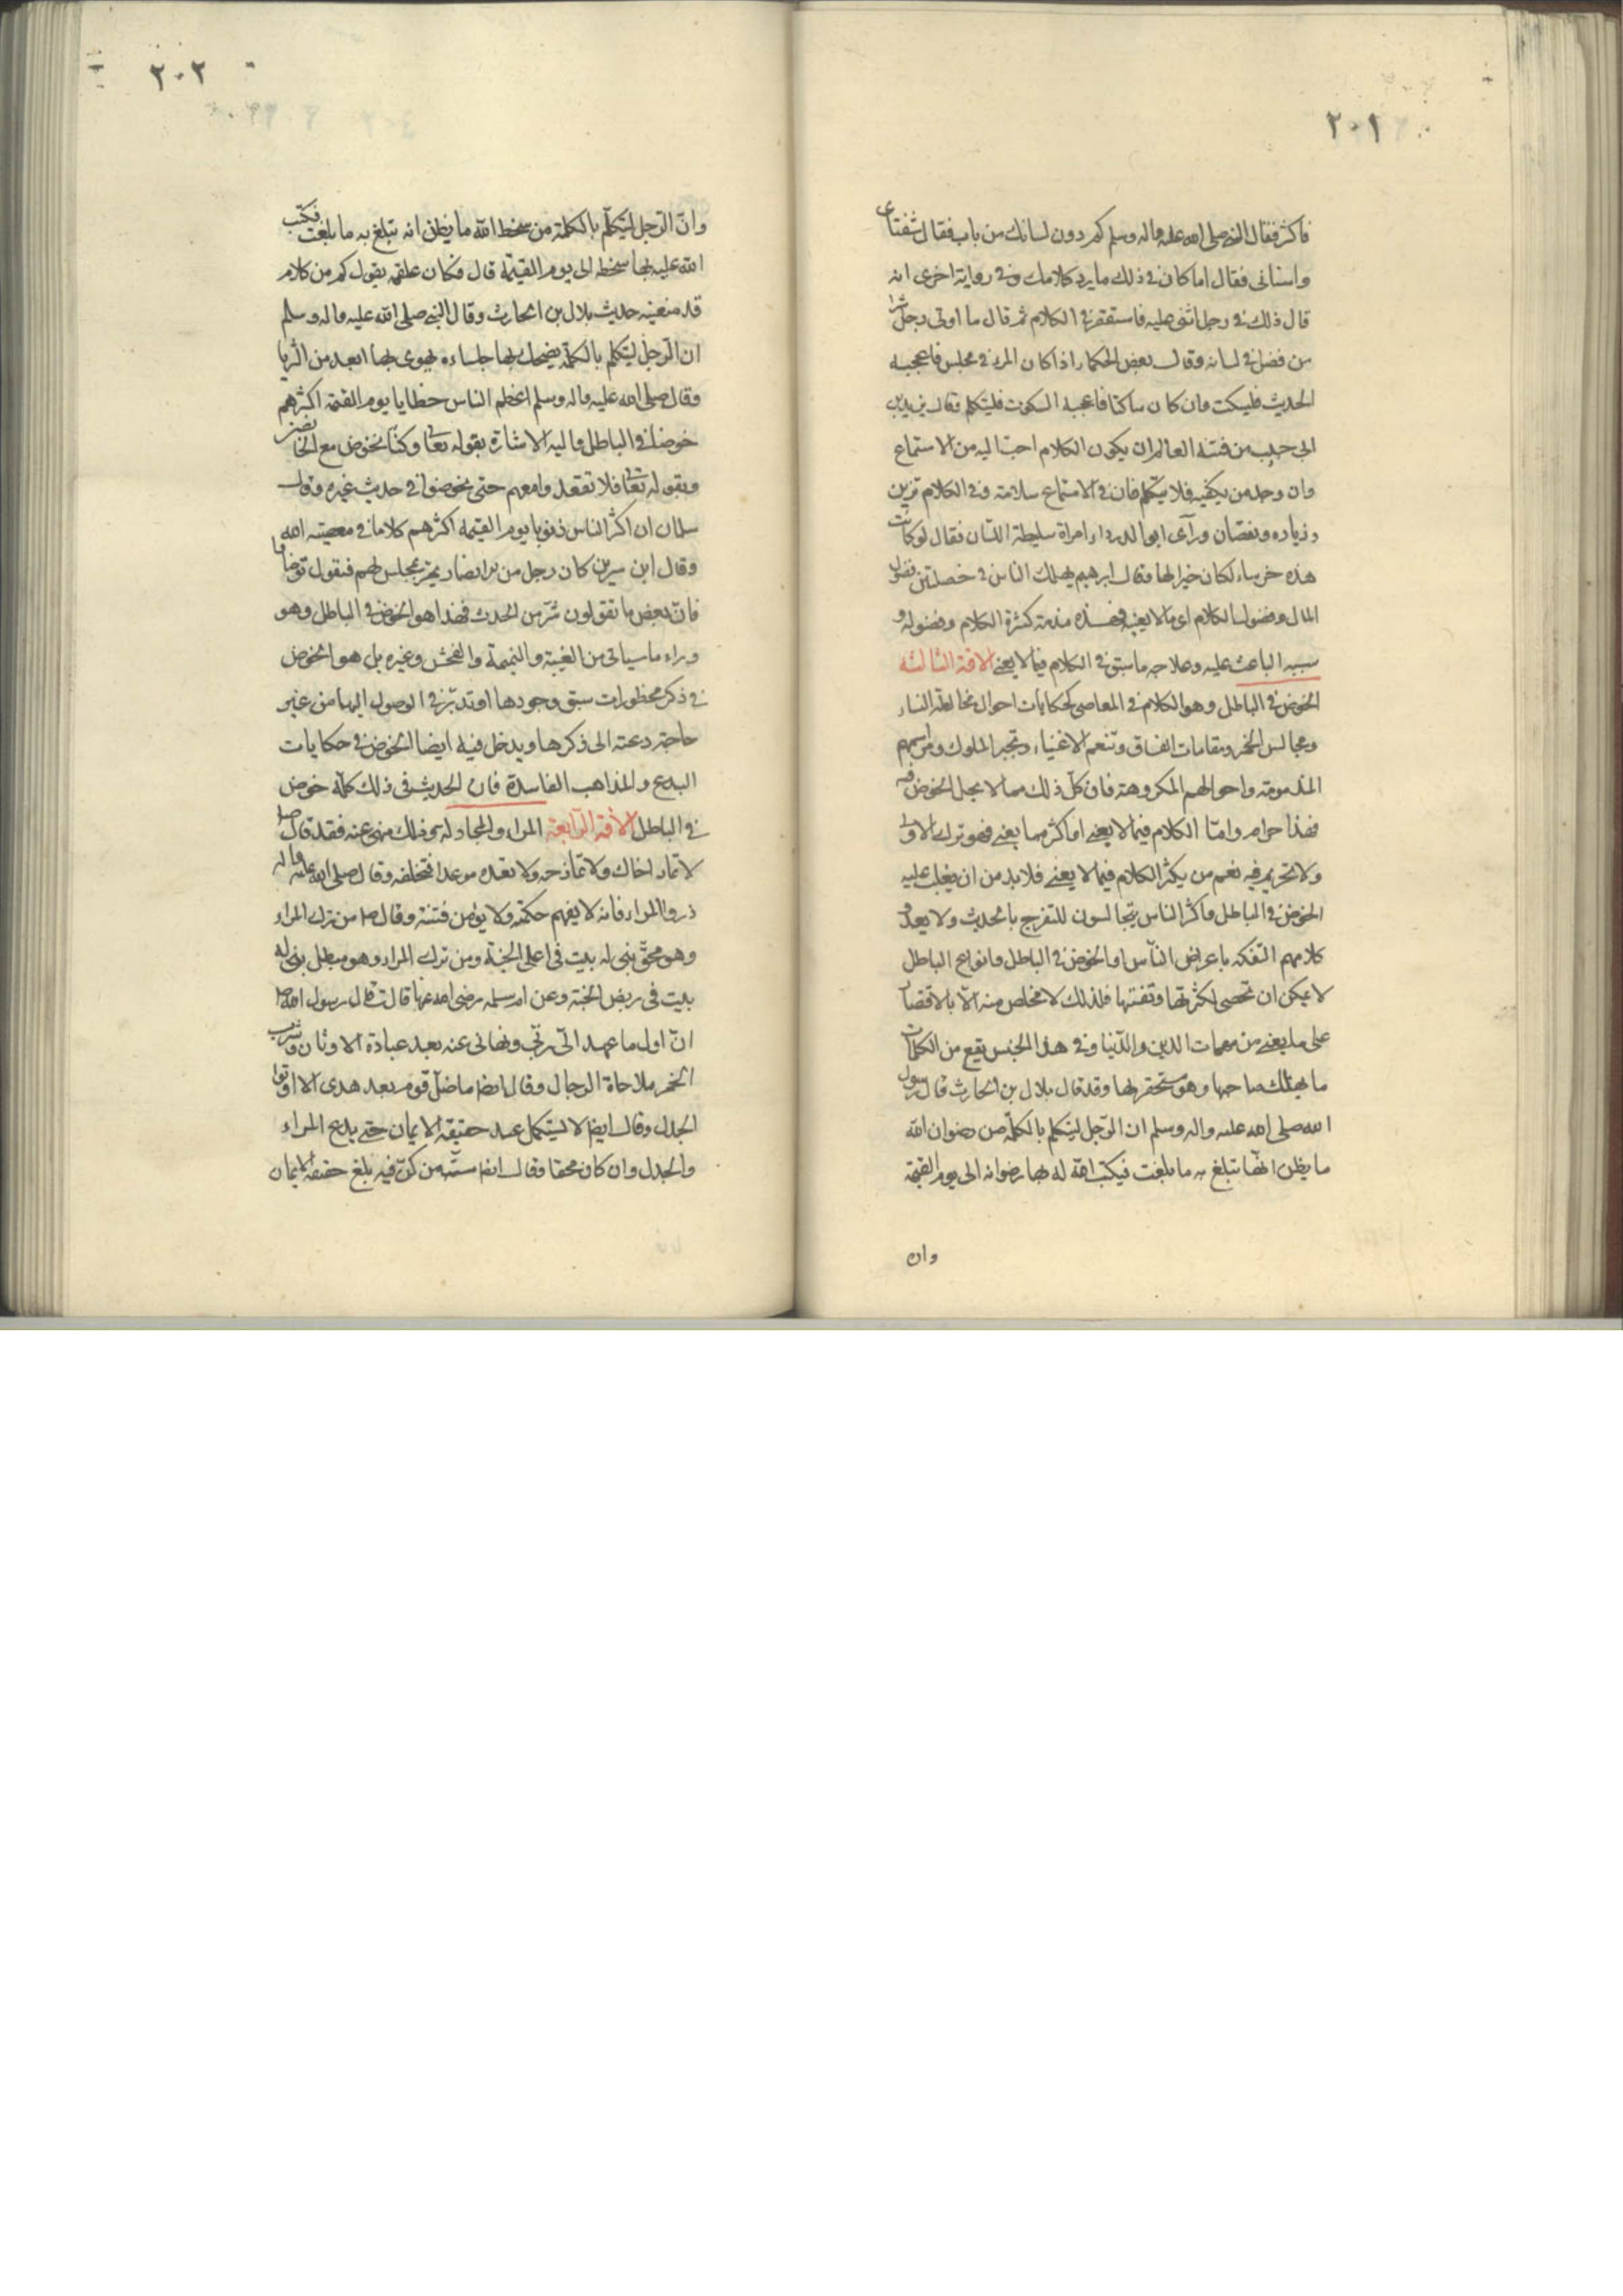 ٢٠١
فاكثر فقال النبى صلى الله عليه واله وسلم كم دون لسانك من باب فقال شفتاى
واسنانى فقال اما كان فى ذلك ما يرد كلامك وفى رواية اخرى انه
قال ذلك فى رجل اثنى عليه فاستقفر فى الكلام ثم قال ما اوتى رجل شرا
من فضل فى لسانه وقال بعض الحكماء اذا كان المرء فى مجلس فاعجبه
الحديث فليسكت وان كان ساكتا فاعجبه السكوت فليتكلم وقال يزيد بن
ابى حبيب من فتنة العالم ان يكون الكلام احبّ اليه من الاستماع
وان وجد من يكفيه فلا يتكلم فان فى الاستماع سلامة وفى الكلام تزيين
وزياده ونقصان ورآى ابو الدرداء امراة سليطة اللسان فقال لو كانت
هذه خرساء لكان خيرا لها وقال ابرهيم يهلك الناس فى خصلتين فضول
المال وفضول الكلام اى ما لا يعنيه فهذه مذمة كثرة الكلام وفضوله و
سببه الباعث عليه وعلاجه ما سبق فى الكلام فيما لا يعنے الافة الثالثه
الخوض فى الباطل وهو الكلام فى المعاصى كحكايات احوال مخالطة النساء
ومجالس الخمر ومقامات الفساق وتنعم الاغنياء وتجبر الملوك ومراسمهم
المذمومة واحوالهم المكروهة فان كلّ ذلك مما لا يحل الخوض فيه
فهذا حرام وامّا الكلام فيما لا يعنے او اكثر مما يعنے فهو ترك الاولى
ولا تحريم فيه نعم من يكثر الكلام فيما لا يعنے فلا بد من ان يغلب عليه
الخوض فى الباطل واكثر الناس يتجالسون للتفرج بالحديث ولا يعدو
كلامهم التفكه باعراض النّاس او الخوض فى الباطل وانواع الباطل
لا يمكن ان تحصى لكثرتها وتفننها فلذلك لا مخلص منه الّا بالاقتصار
على ما يعنے من مهمات الدين والدّنيا وفى هذا الجنس تقع من الكلمات
ما يهلك صاحبها وهو مستحقر لها وقد قال بلال بن الحارث قال رسول
الله صلى الله عليه واله وسلم ان الرّجل ليتكلم بالكلمة من رضوان الله
ما يظن انّها تبلغ به ما بلغت فيكتب الله له بها رضوانه الى يوم القيمة
وان
٢٠٢
وانّ الرّجل ليتكلّم بالكلمة من سخط الله ما يظن انه تبلغ به ما بلغت فيكتب
الله عليه بها سخطه الى يوم القيمة قال فكان علقمه يقول كم من كلام
قد منعنيه حديث بلال بن الحارث وقال النبى صلى الله عليه واله وسلم
ان الرّجل ليتكلم بالكلمة يضحك بها جلساءه يهوى بها ابعد من الثريا
وقال صلى الله عليه واله وسلم اعظم الناس خطايا يوم القيمة اكثرهم
خوضا فى الباطل واليه الاشارة بقوله تعالى وكنّا نخوض مع الخائضين
وبقوله تعالى فلا تقعدوا معهم حتى يخوضوا فى حديث غيره وقال
سلمان ان اكثر الناس ذنوبا يوم القيمة اكثرهم كلاما فى معصية الله
وقال ابن سيرين كان رجل من الانصار يمر بمجلس لهم فيقول توضاوا
فانّ بعض ما تقولون شرّ من الحدث فهذا هو الخوض فى الباطل وهو
وراء ما سياتى من الغيبة والنميمة والفحش وغيره بل هو الخوض
فى ذكر محظورات سبق وجودها او تدبّر فى الوصول اليها من غير
حاجة دعته الى ذكرها ويدخل فيه ايضا الخوض فى حكايات
البدع والمذاهب الفاسدة فان الحديث فى ذلك كلّه خوض
فى الباطل الآفة الرّابعة المراء والمجادلة وذلك منهى عنه فقد قال صلى
لا تمار اخاك ولا تمازحه ولا تعده موعدا فتخلفه وقال صلى الله عليه واله
ذروا المراء فانه لا يفهم حكمته ولا يؤمن فتنته وقال ص من ترك المراء
وهو محقّ بنى له بيت فى اعلى الجنّة ومن ترك المراء وهو مبطل بنى له
بيت فى ربض الجنة وعن ام سلمه رضى الله عنها قالت قال رسول الله ص
انّ اول ما عهد الىّ ربّى ونهانى عنه بعد عبادة الاوثان وشرب
الخمر ملاحاة الرجال وقال ايضا ما ضلّ قوم بعد هدى الا اوتوا
الجدل وقال ايضا لا يستكمل عبد حقيقة الايمان حتے يدع المراء
والجدل وان كان محقا وقال ايضا ستّة من كنّ فيه بلغ حقيقة الايمان